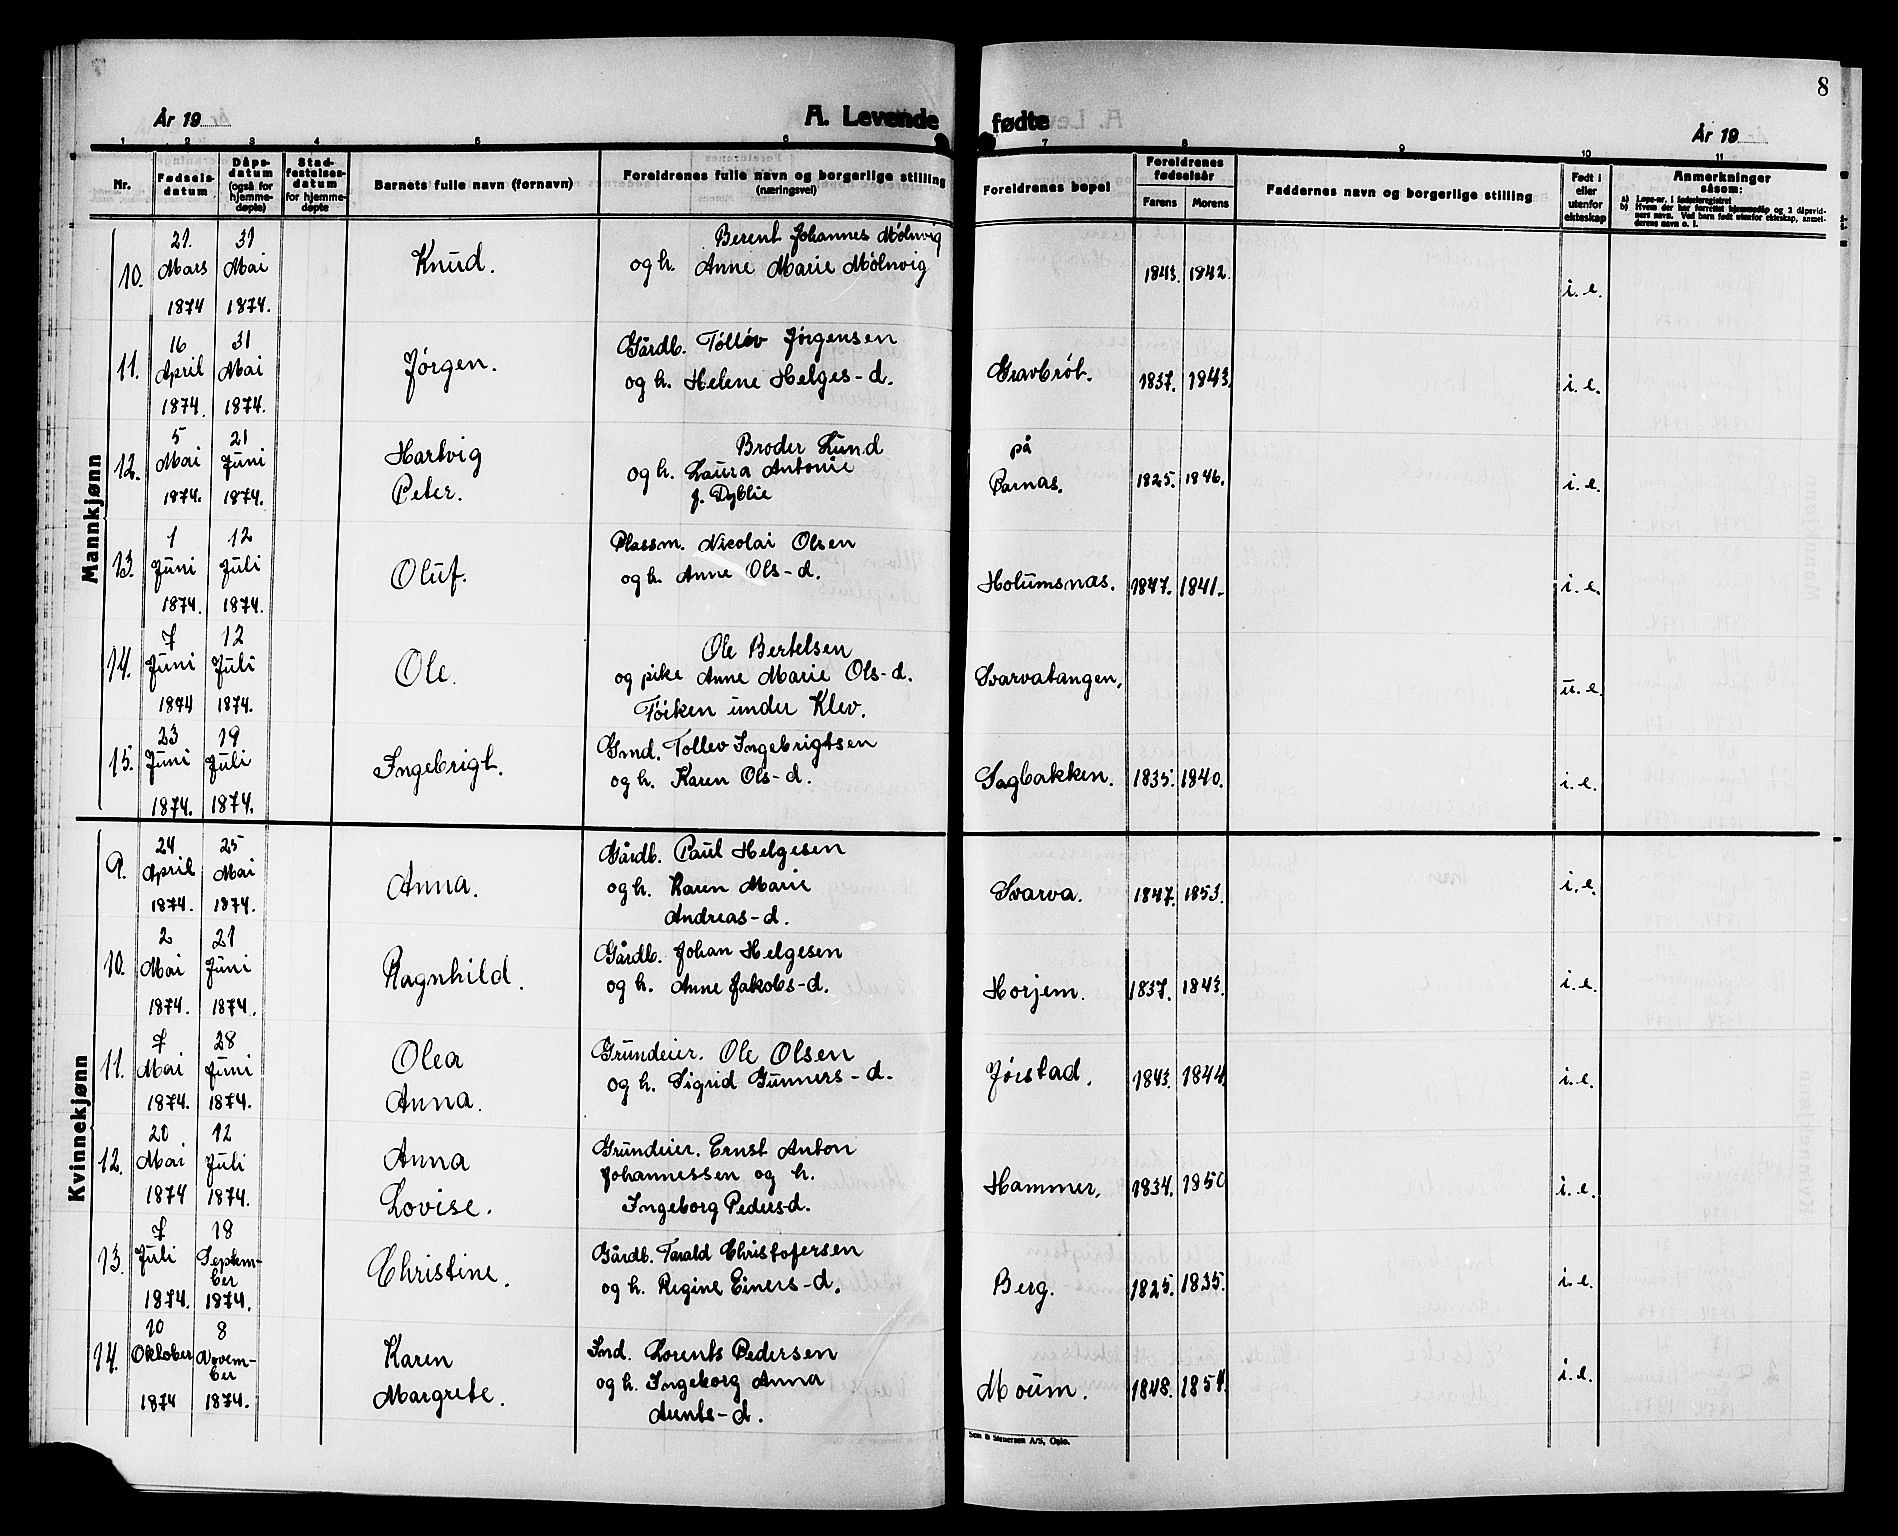 8
År 19
A. Levende fødte
År 19
1 2 3 4 5 6 7 8 9 10 11
Nr. Fødselsdatum Dåpsdatum (også for hjemmedøpte) Stadfestelsesdatum for hjemmedøpte Barnets fulle navn (fornavn) Foreldrenes fulle navn og borgerlige stilling (næringsvei) Foreldrenes bopel Foreldrenes fødselsår Farens Morens Faddernes navn og borgerlige stilling Født i eller utenfor ekteskap Anmerkninger såsom:
a) Løpe-nr. i fødselsregistret
b) Hvem der har forrettet hjemmedåp og 2 dåpsvidners navn. Ved barn født utenfor ekteskap, anmelderens navn o. l.
Mannkjønn
10. 21. Mars 1874 31 Mai 1874. Knud. Berent Johannes Mølnvig
og h. Anne Marie Mølnvig 1843. 1842. i. e.
11. 16 April 1874. 31 Mai 1874. Jørgen. Gårdb. Tollöv Jørgensen
og h. Helene Helges-d. Gravbröt. 1837. 1843. i. e.
12. 5 Mai 1874. 21 Juni 1874. Hartvig Peter. Broder Lund
og h. Laura Antonie
f. Dyblie på Parnas. 1825. 1846. i. e.
13. 1 Juni 1874. 12 Juli 1874. Oluf. Plassm. Nicolai Olsen
og h. Anne Ols-d. Holumsnas. 1847. 1841. i. e.
14. 7 Juni 1874 12 Juli 1874. Ole. Ole Bertelsen
og pike Anne Marie Ols-d.
Töiken under Klev. Svarvatangen, u. e.
15. 23 Juni 1874. 19 Juli 1874. Ingebrigt. Gmd. Tollev Ingebrigtsen
og h. Karen Ols-d. Sagbakken. 1835. 1840. i. e.
Kvinnekjønn
9. 24 April 1874. 25 Mai 1874. Anna. Gårdb. Paul Helgesen
og h. Karen Marie
Andreas-d. Svarva. 1847. 1853. i. e.
10. 2 Mai 1874. 21 Juni 1874. Ragnhild. Gårdb. Johan Helgesen
og h. Anne Jakobs-d. Horjem. 1837. 1843. i. e.
11. 7 Mai 1874. 28 Juni 1874. Olea Anna. Grundeier. Ole Olsen
og h. Sigrid Gunners-d. Jørstad. 1843. 1844. i. e.
12. 20 Mai 1874 12 Juli 1874. Anna Lovise. Grundeier. Ernst Anton
Johannessen og h.
Ingeborg Peders-d. Hammer. 1834. 1850 i. e.
13. 7 Juli 1874. 18 September 1874. Christine. Gårdb. Tarald Christofersen
og h. Regine Einers-d. Berg. 1825. 1835. i. e.
14. 10 Oktober 1874 8 November 1874. Karen Margrete. Ind. Lorents Pedersen
og h. Ingeborg Anna
Arnts-d. Moum. 1848. 1851. i. e.
Sem & Stenersen A/S, Oslo.